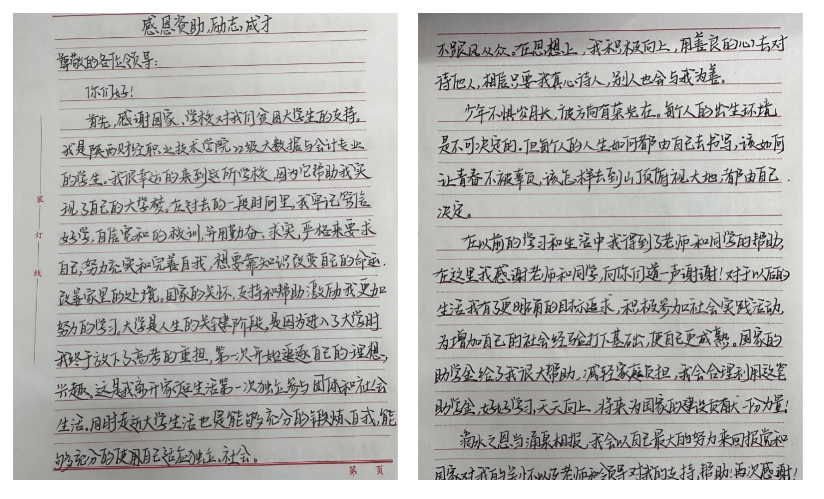 感恩资助,励志成才
尊敬的各位领导:
你们好!
首先,感谢国家、学校对我们贫困大学生的支持。
我是陕西财经职业技术学院22级大数据与会计专业
的学生。我很幸运的来到这所学校,因为它帮助我实
现了自己的大学梦。在过去的一段时间里,我牢记笃信
好学,自信宽和的校训,并用勤奋、求实,严格来要求
自己,努力充实和完善自我,想要靠知识改变自己的命运.
改善家里的处境,国家的关怀、支持和帮助激励我更加
努力的学习。大学是人生的关键阶段,是因为进入了大学时
我终于放下了高考的重担,第一次开始追逐自己的理想、
兴趣、这是我离开家庭生活第一次独立参与团体和社会
生活。同时走动大学生活也是能够充分的锻炼自我,能
够充分的使用自己适应独立、社会。
装
订
线
第 页
不跟风从众。在思想上,我积极向上,用善良的心去对
待他人,相信只要我真心待人,别人也会与我为善。
少年不惧岁月长,彼方尚有荣光在。每个人的出生环境
是不可决定的.但每个人的人生如何都由自己去书写,该如何
让青春不被辜负,该怎样去到山顶俯视大地都由自己
决定。
在以前的学习和生活中我得到了老师和同学的帮助,
在这里我感谢老师和同学,向你们道一声谢谢!对于以后的
生活我有了更明确的目标追求,积极参加社会实践活动,
为增加自己的社会经验打下基础,使自己更成熟。国家的
助学金给了我很大帮助,减轻家庭负担,我会合理利用这笔
助学金,好好学习,天天向上,将来为国家的建设贡献一份力量!
滴水之恩当涌泉相报,我会以自己最大的努力来回报党和
国家对我的关怀以及老师和领导对我的支持,帮助!再次感谢!